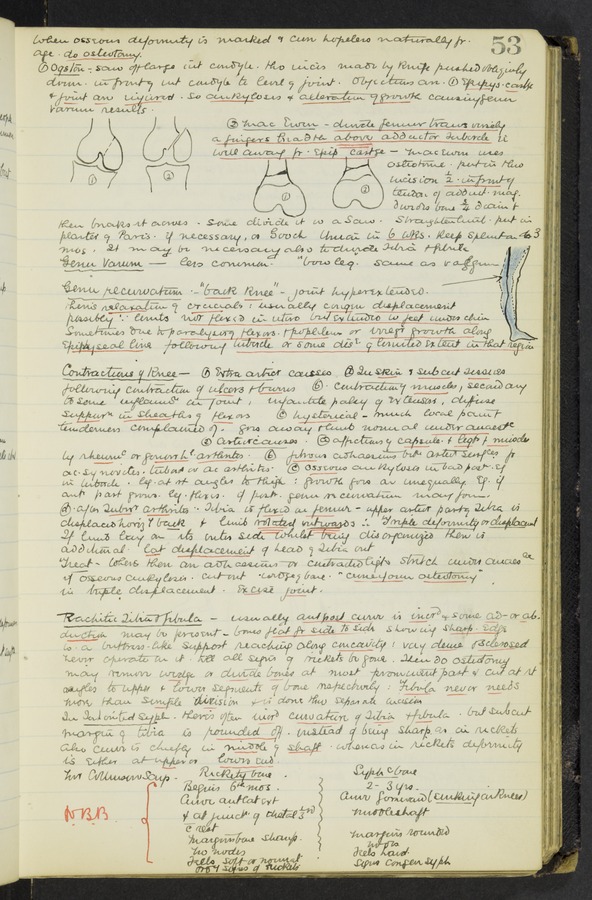 53
When osseous deformity is marked & cure hopeless naturally fr.
age. do osteotomy.
① Ogston - saw off large int condyle. tho incis made by knife pushed obliquely
down in front of int condyle to level of joint. Objections are. ① Epiphys. cartge
& joint are injured. So ankylosis & alteration of growth causing genu
varum results.
② Mac Ewen - divide femur transversely
a fingers breadth above adductor tubercle ie
well away fr. Epip cartge - MacEwen uses
osteotome. put in thro
incision ½" in front of
tendon of adduct. mag.
divides bone ¾ &
①
②
①
②
then breaks it across. Some divide it w a Saw. Straighten limb. put in
plaster of Paris. if necessary, or Gooch Union in 6 wks. keep Splint on 3
mos. It may be necessary also to divide tibia & fibula
Genu Varum — less common. "bow leg. same as valgum
Genu recurvatum - "back knee" - joint hyperextended.
There is relaxation of crucials: usually congen displacement
possibly ∵ limbs not flexed in utero but extended w feet under chin
Sometimes due to paralysis of flexors & popliteus or irreg growth along
Epiphyseal line following tubercle or some dise of limited extent in that region
Contractions of Knee - ① Extra artict causes. Ⓐ In skin & subcut tissues
following contraction of ulcers & burns Ⓑ. Contracting muscles, secondary
to some inflamn in joint, infantile palsy of extensors, diffuse
suppurn in sheaths of flexors Ⓒ hysterical - much local pain &
tenderness complained of. goes away & limb normal under anaesthe
② articr causes. Ⓐ affections of capsule & ligts & muscles
by rheumc or gonorrhl arthrites. Ⓑ fibrous adhesions betw artict surfaces fr
ac. synovitis. tubere or ac arthritis. Ⓒ osseous ankylosis in bad post. eg
in tubercle. leg at rt angles to thigh: growth goes on unequally Eg. if
ant part grows. leg flexes. if post. genu recurvatum may form.
Ⓓ. after tubercr arthrites. Tibia is flexed on femur - upper artict part of tibia is
displaced horizly back & limb rotated outwards ∴ Triple deformity or displacemt
If limb lay on its outer side whilst being disorganized then is
additional lat displacement of head of tibia out
Treat - Where there are adhesions or contracted ligts stretch under anaesthe
if osseous ankylosis. cut out wedge of bone. "cuneiform osteotomy"
in triple displacement. Excise joint.
Rachitic Tibia & fibula - usually antpost curve is incrd & some ad- or ab-
duction may be present - bones flat fr side to side showing sharp edge
is a buttress-like support reaching along concavity: very dense & sclerosed
never operate on it till all signs of rickets be gone. Then do osteotomy
may remove wedge or divide bones at most prominent part & cut at rt
angles to upper & lower segments of bone respectively: Fibula never needs
more than simple division & is done thro separate incision
In Inherited Syph. there is often incrd curvature of Tibia & fibula. but subcut
margin of tibia is rounded off instead of being sharp as in rickets
also curve is chiefly in middle of shaft whereas in rickets deformity
is either at upper or lower end.
Collinson says. Rickety bone.
Syphc bone
N.B.B.
Begins 6th mos.
2 - 3 yrs.
Curve ant lat ext
Curve forward
& at junctn of
middle shaft
crest
Margin bone sharp.
margin rounded
no nodes
nodes
Feels soft or normal
Feels hard.
Other signs of rickets
Signs congen Syph